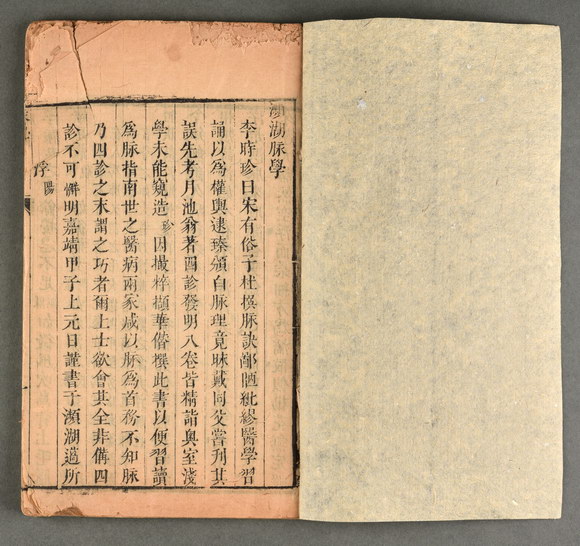 瀕湖脉學
李時珍曰宋有俗子杜撰脉訣鄙陋紕繆醫學習
誦以為權輿逮臻頒白脉理竟昧戴同父嘗刋其
誤先考月池翁著四診發明八卷皆精詣奥室淺
學未能窺造珍因撮粹擷華僭撰此書以便習讀
為脉指南世之醫病兩家咸以脉為首務不知脉
乃四診之末謂之巧者爾上士欲會其全非備四
診不可皆明嘉靖甲子上元日謹書于瀕湖薖所
浮陽